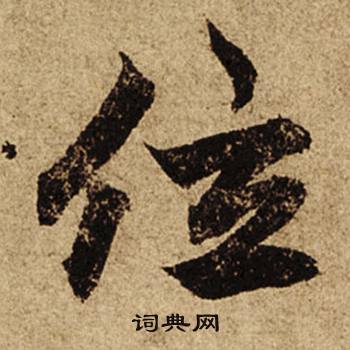 位
词典网